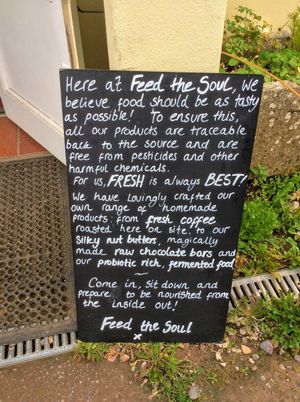 Here at Feed the Soul, we
believe food should be as tasty
as possible! To ensure this,
all our products are traceable
back to the source and are
free from pesticides and other
harmful chemicals.
For us, FRESH is always BEST!
We have lovingly crafted our
own range of homemade
products: from fresh coffee
roasted here on site, to our
silky nut butters, magically
made raw chocolate bars and
our probiotic rich, fermented food
~
Come in, sit down and
prepare to be nourished from
the inside out!
Feed the Soul
x